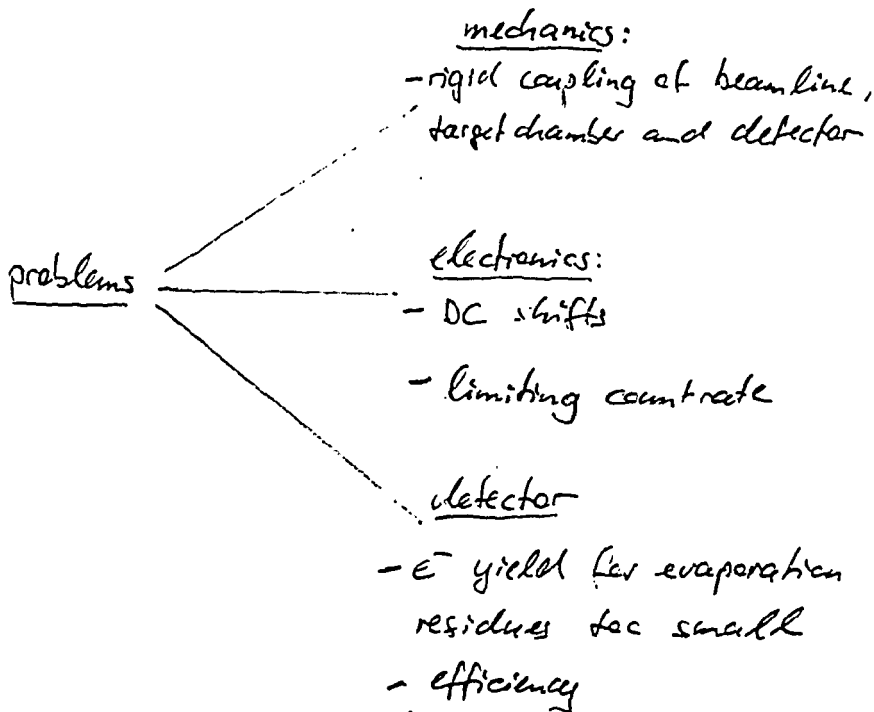 mechanics:
- rigid coupling of beamline,
target chamber and detector
problems
electronics:
- DC shifts
- limiting countrate
detector
- e⁻ yield for evaporation
residues too small
- efficiency